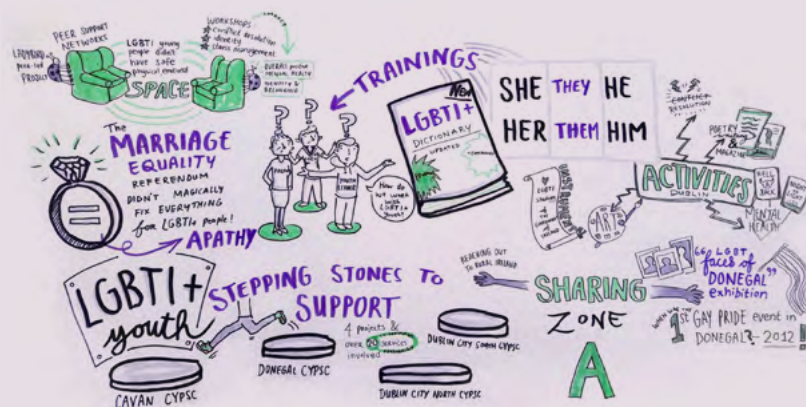 PEER SUPPORT
NETWORKS
LADYBIRD
peer-led
PRODUCT
LGBTI young
people didn't
have safe
physical
SPACE
WORKSHOPS:
conflict resolution
identity
stress management
OVERALL positive
MENTAL HEALTH
IDENTITY &
BELONGING
The
MARRIAGE
EQUALITY
REFERENDUM
DIDN'T MAGICALLY
FIX EVERYTHING
for LGBTI+ people!
APATHY
TRAININGS
?
?
?
How do
we work
with
LGBTI+
youth?
NEW
LGBTI+
DICTIONARY
UPDATED
SHE THEY HE
HER THEM HIM
CONFLICT
RESOLUTION
POETRY
&
MAGAZINE
ACTIVITIES
DUBLIN
MENTAL
HEALTH
ART
LGBTI+
youth
STEPPING STONES TO
SUPPORT
4 projects &
over 20 services
involved
CAVAN CYPSC
DONEGAL CYPSC
DUBLIN CITY SOUTH CYPSC
DUBLIN CITY NORTH CYPSC
REACHING OUT
TO RURAL IRELAND
SHARING
ZONE
A
"LGBT
faces of
DONEGAL"
exhibition
WHEN WAS THE
1st GAY PRIDE event in
DONEGAL? - 2012!!